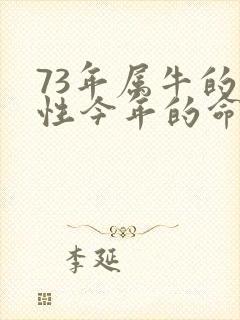 73年属牛的
性今年的命
李延